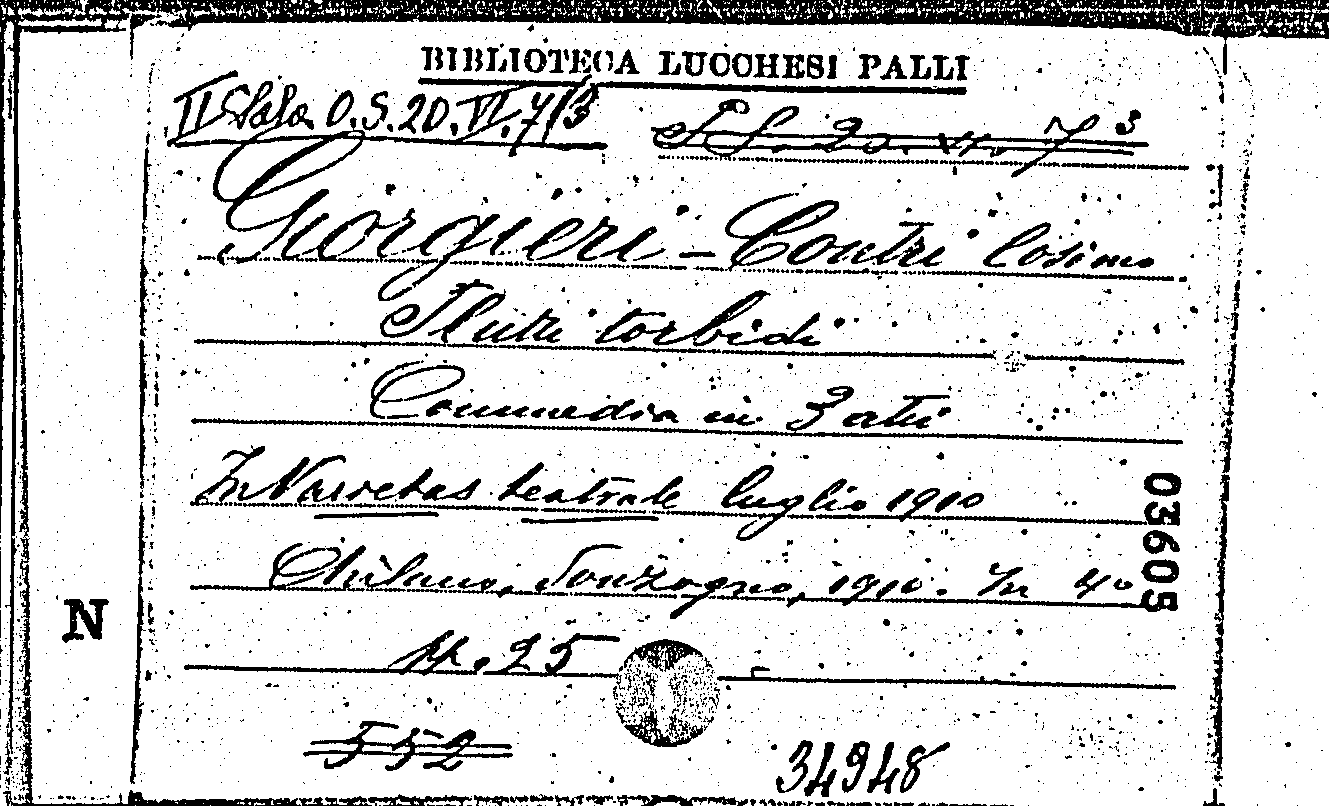 BIBLIOTECA LUCCHESI PALLI
II Sala O.S.20.VI.7/3
Giorgieri-Contri Cosimo
Flutti torbidi
Commedia in 3 atti
In Varietas teatrale luglio 1910
Milano, Sonzogno, 1910. In 4°
03605
N
pp. 25
552
34948